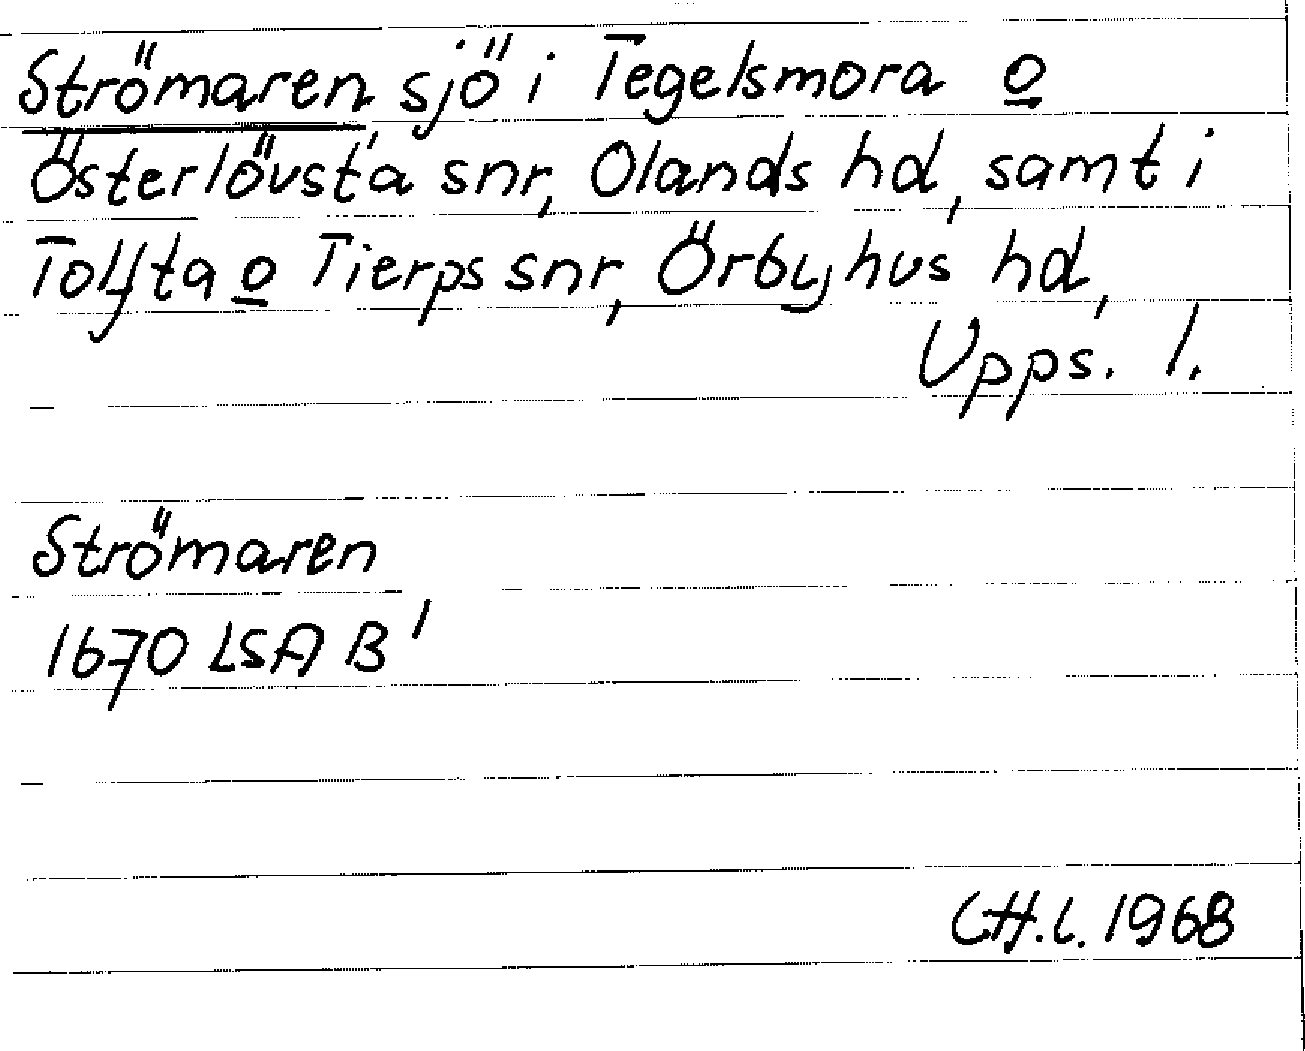 Strömaren, sjö i Tegelsmora o
Österlövsta snr, Olands hd, samt i
Tolfta o Tierps snr, Örbyhus hd,
Upps. l.
Strömaren
1670 LSA B'
CH.L. 1968